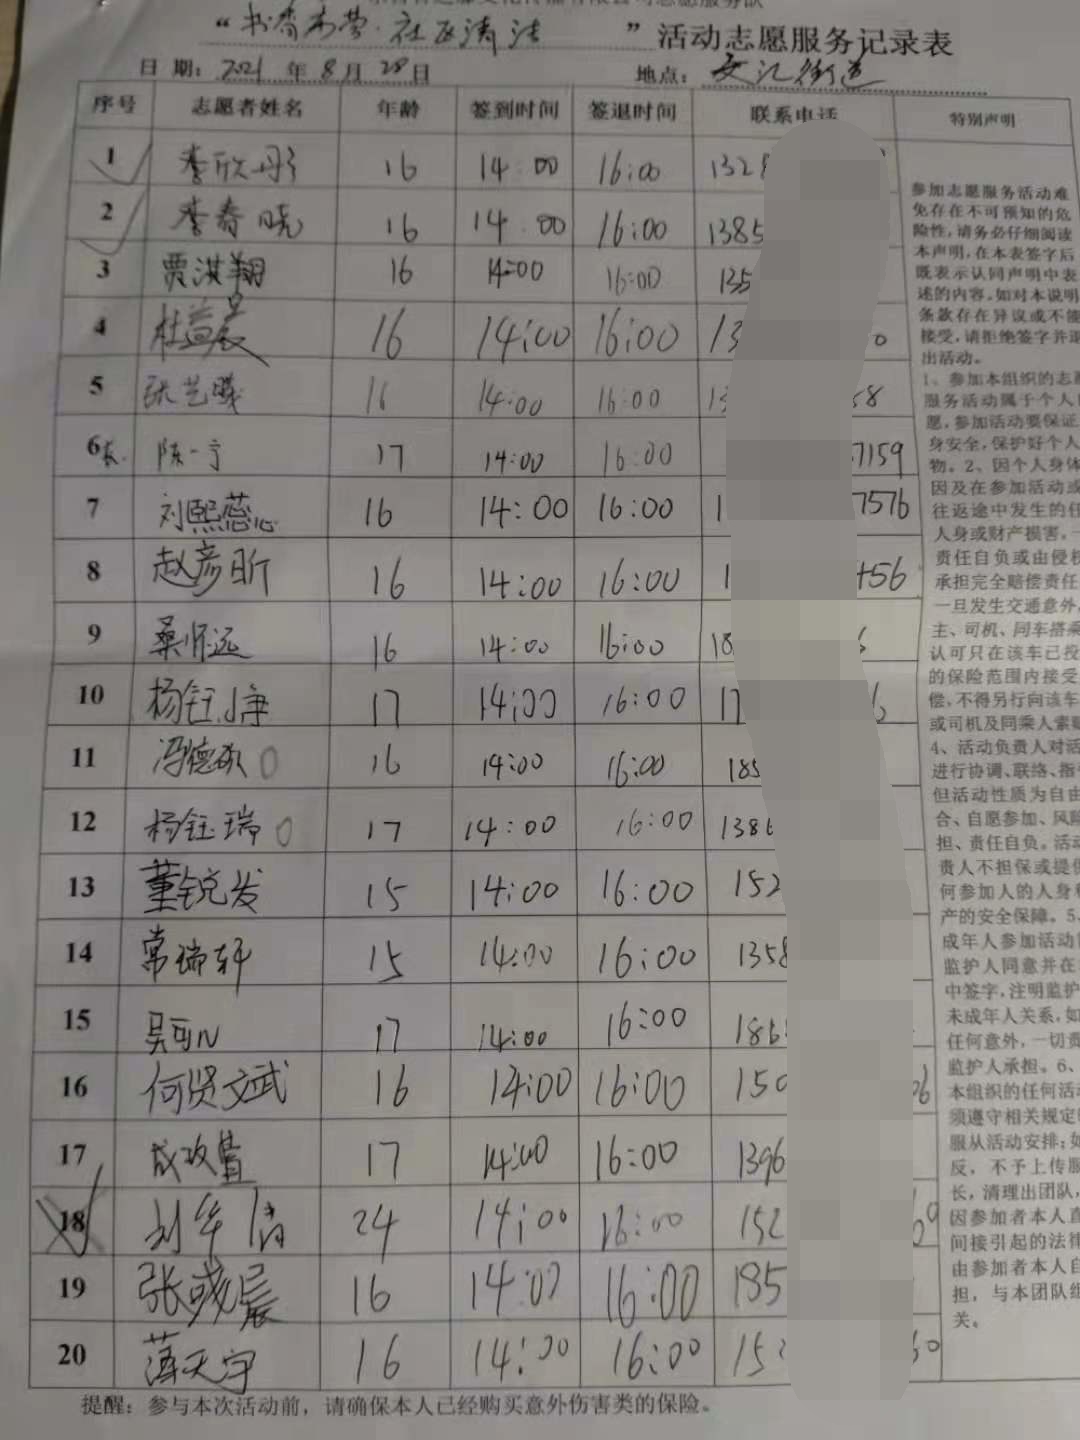 “书香布营·社区清洁”活动志愿服务记录表
日 期: 2021 年 8 月 28 日 地点: 文汇街道
序号 志愿者姓名 年龄 签到时间 签退时间 联系电话 特别声明
1 李欣丹 16 14:00 16:00 1328
2 李春晓 16 14:00 16:00 1385
3 贾淇翔 16 14:00 16:00 135
4 杜益晨 16 14:00 16:00 13 0
5 张艺曦 16 14:00 16:00 13 58
6 陈一宁 17 14:00 16:00 7159
7 刘熙蕊 16 14:00 16:00 1 7576
8 赵彦昕 16 14:00 16:00 1 456
9 桑怀远 16 14:00 16:00 18 6
10 杨钰康 17 14:00 16:00 17 6
11 冯德硕 16 14:00 16:00 185
12 杨钰瑞 17 14:00 16:00 1386
13 董锐发 15 14:00 16:00 152
14 常瑞轩 15 14:00 16:00 1358
15 吴可凡 17 14:00 16:00 186
16 何贤文武 16 14:00 16:00 150 06
17 成政 17 14:00 16:00 1396
18 刘华倩 24 14:00 16:00 152
19 张彧宸 16 14:00 16:00 185
20 薄天宇 16 14:00 16:00 15 60
参加志愿服务活动难
免存在不可预知的危
险性,请务必仔细阅读
本声明,在本表签字后
既表示认同声明中表
述的内容,如对本说明
条款存在异议或不能
接受,请拒绝签字并退
出活动。
1、参加本组织的志愿
服务活动属于个人自
愿,参加活动要保证
身安全,保护好个人
物。2、因个人身体
因及在参加活动或
往返途中发生的任
人身或财产损害,一
责任自负或由侵权
承担完全赔偿责任
一旦发生交通意外,
主、司机、同车搭乘
认可只在该车已投
的保险范围内接受
偿,不得另行向该车
或司机及同乘人索赔
4、活动负责人对活
进行协调、联络、指
但活动性质为自由
合、自愿参加、风险
担、责任自负。活动
责人不担保或提供
何参加人的人身和
产的安全保障。5、
成年人参加活动
监护人同意并在
中签字,注明监护
未成年人关系,如
任何意外,一切责
监护人承担。6、
本组织的任何活动
须遵守相关规定
服从活动安排;如
反,不予上传服
长,清理出团队,
因参加者本人直
间接引起的法律
由参加者本人自
担,与本团队组
关。
提醒: 参与本次活动前,请确保本人已经购买意外伤害类的保险。